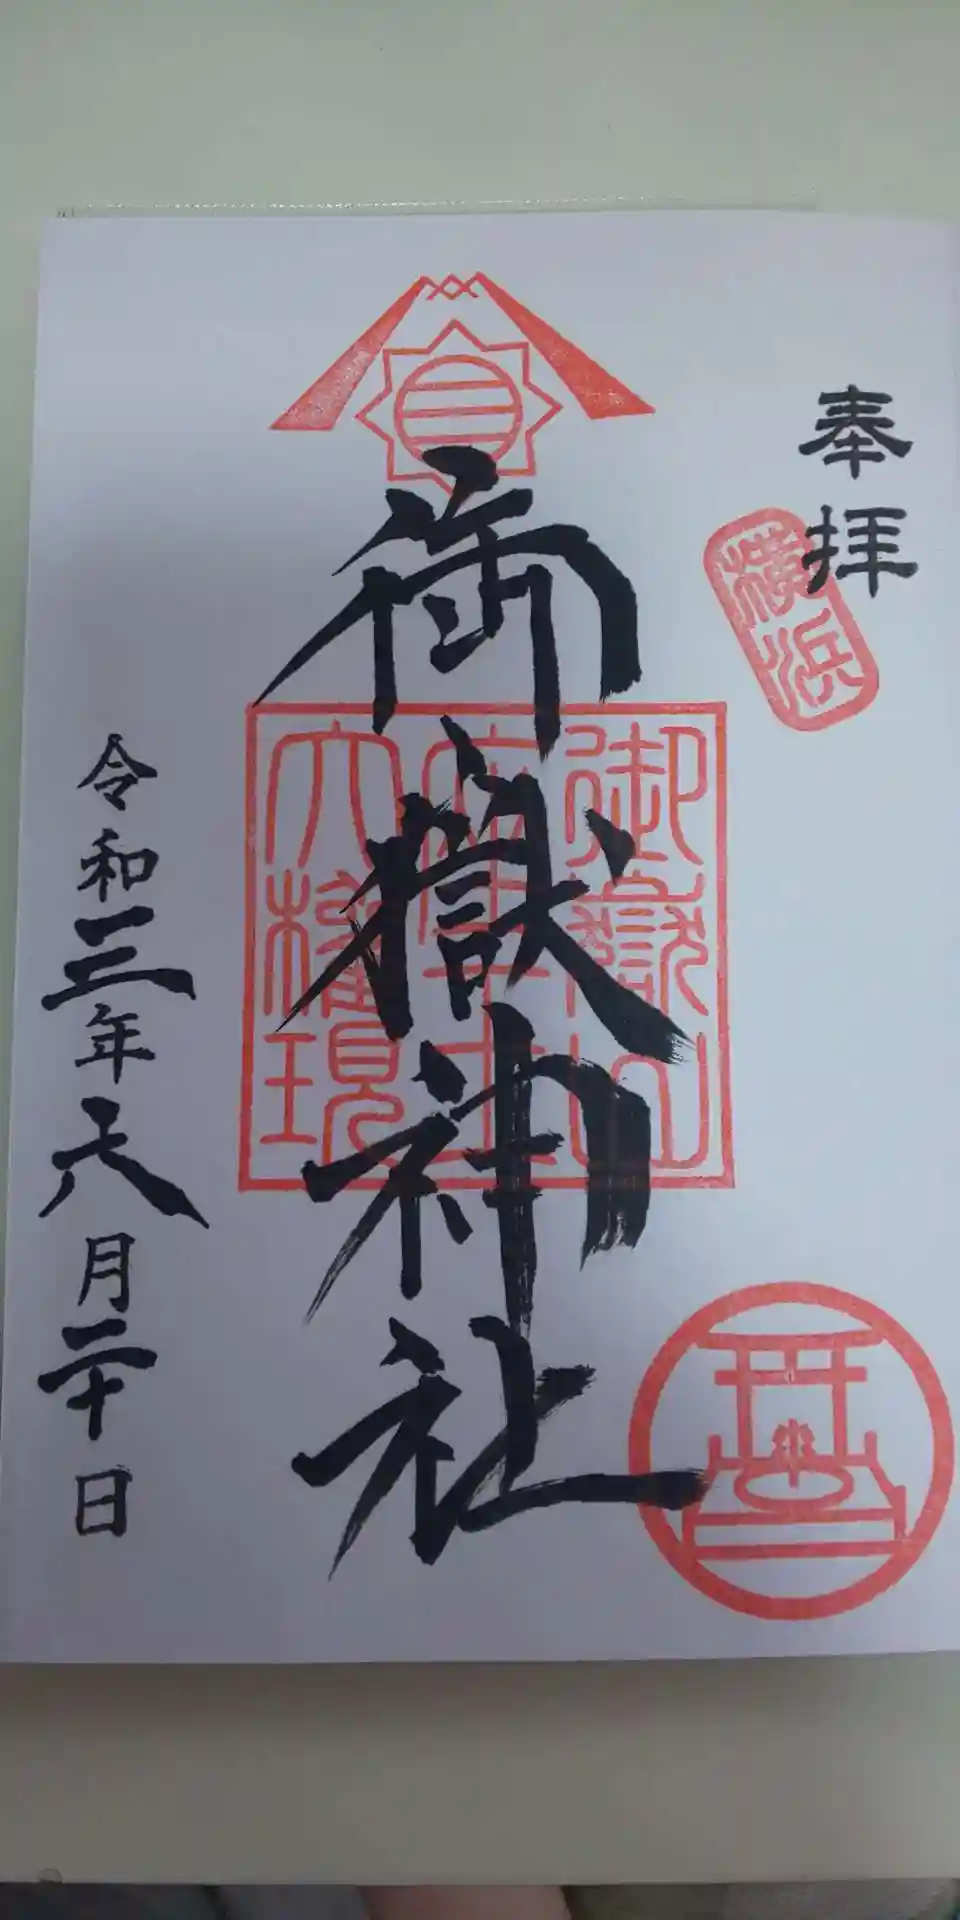 奉拝
横浜
御嶽神社
御嶽山
大權現
令和三年六月二十日